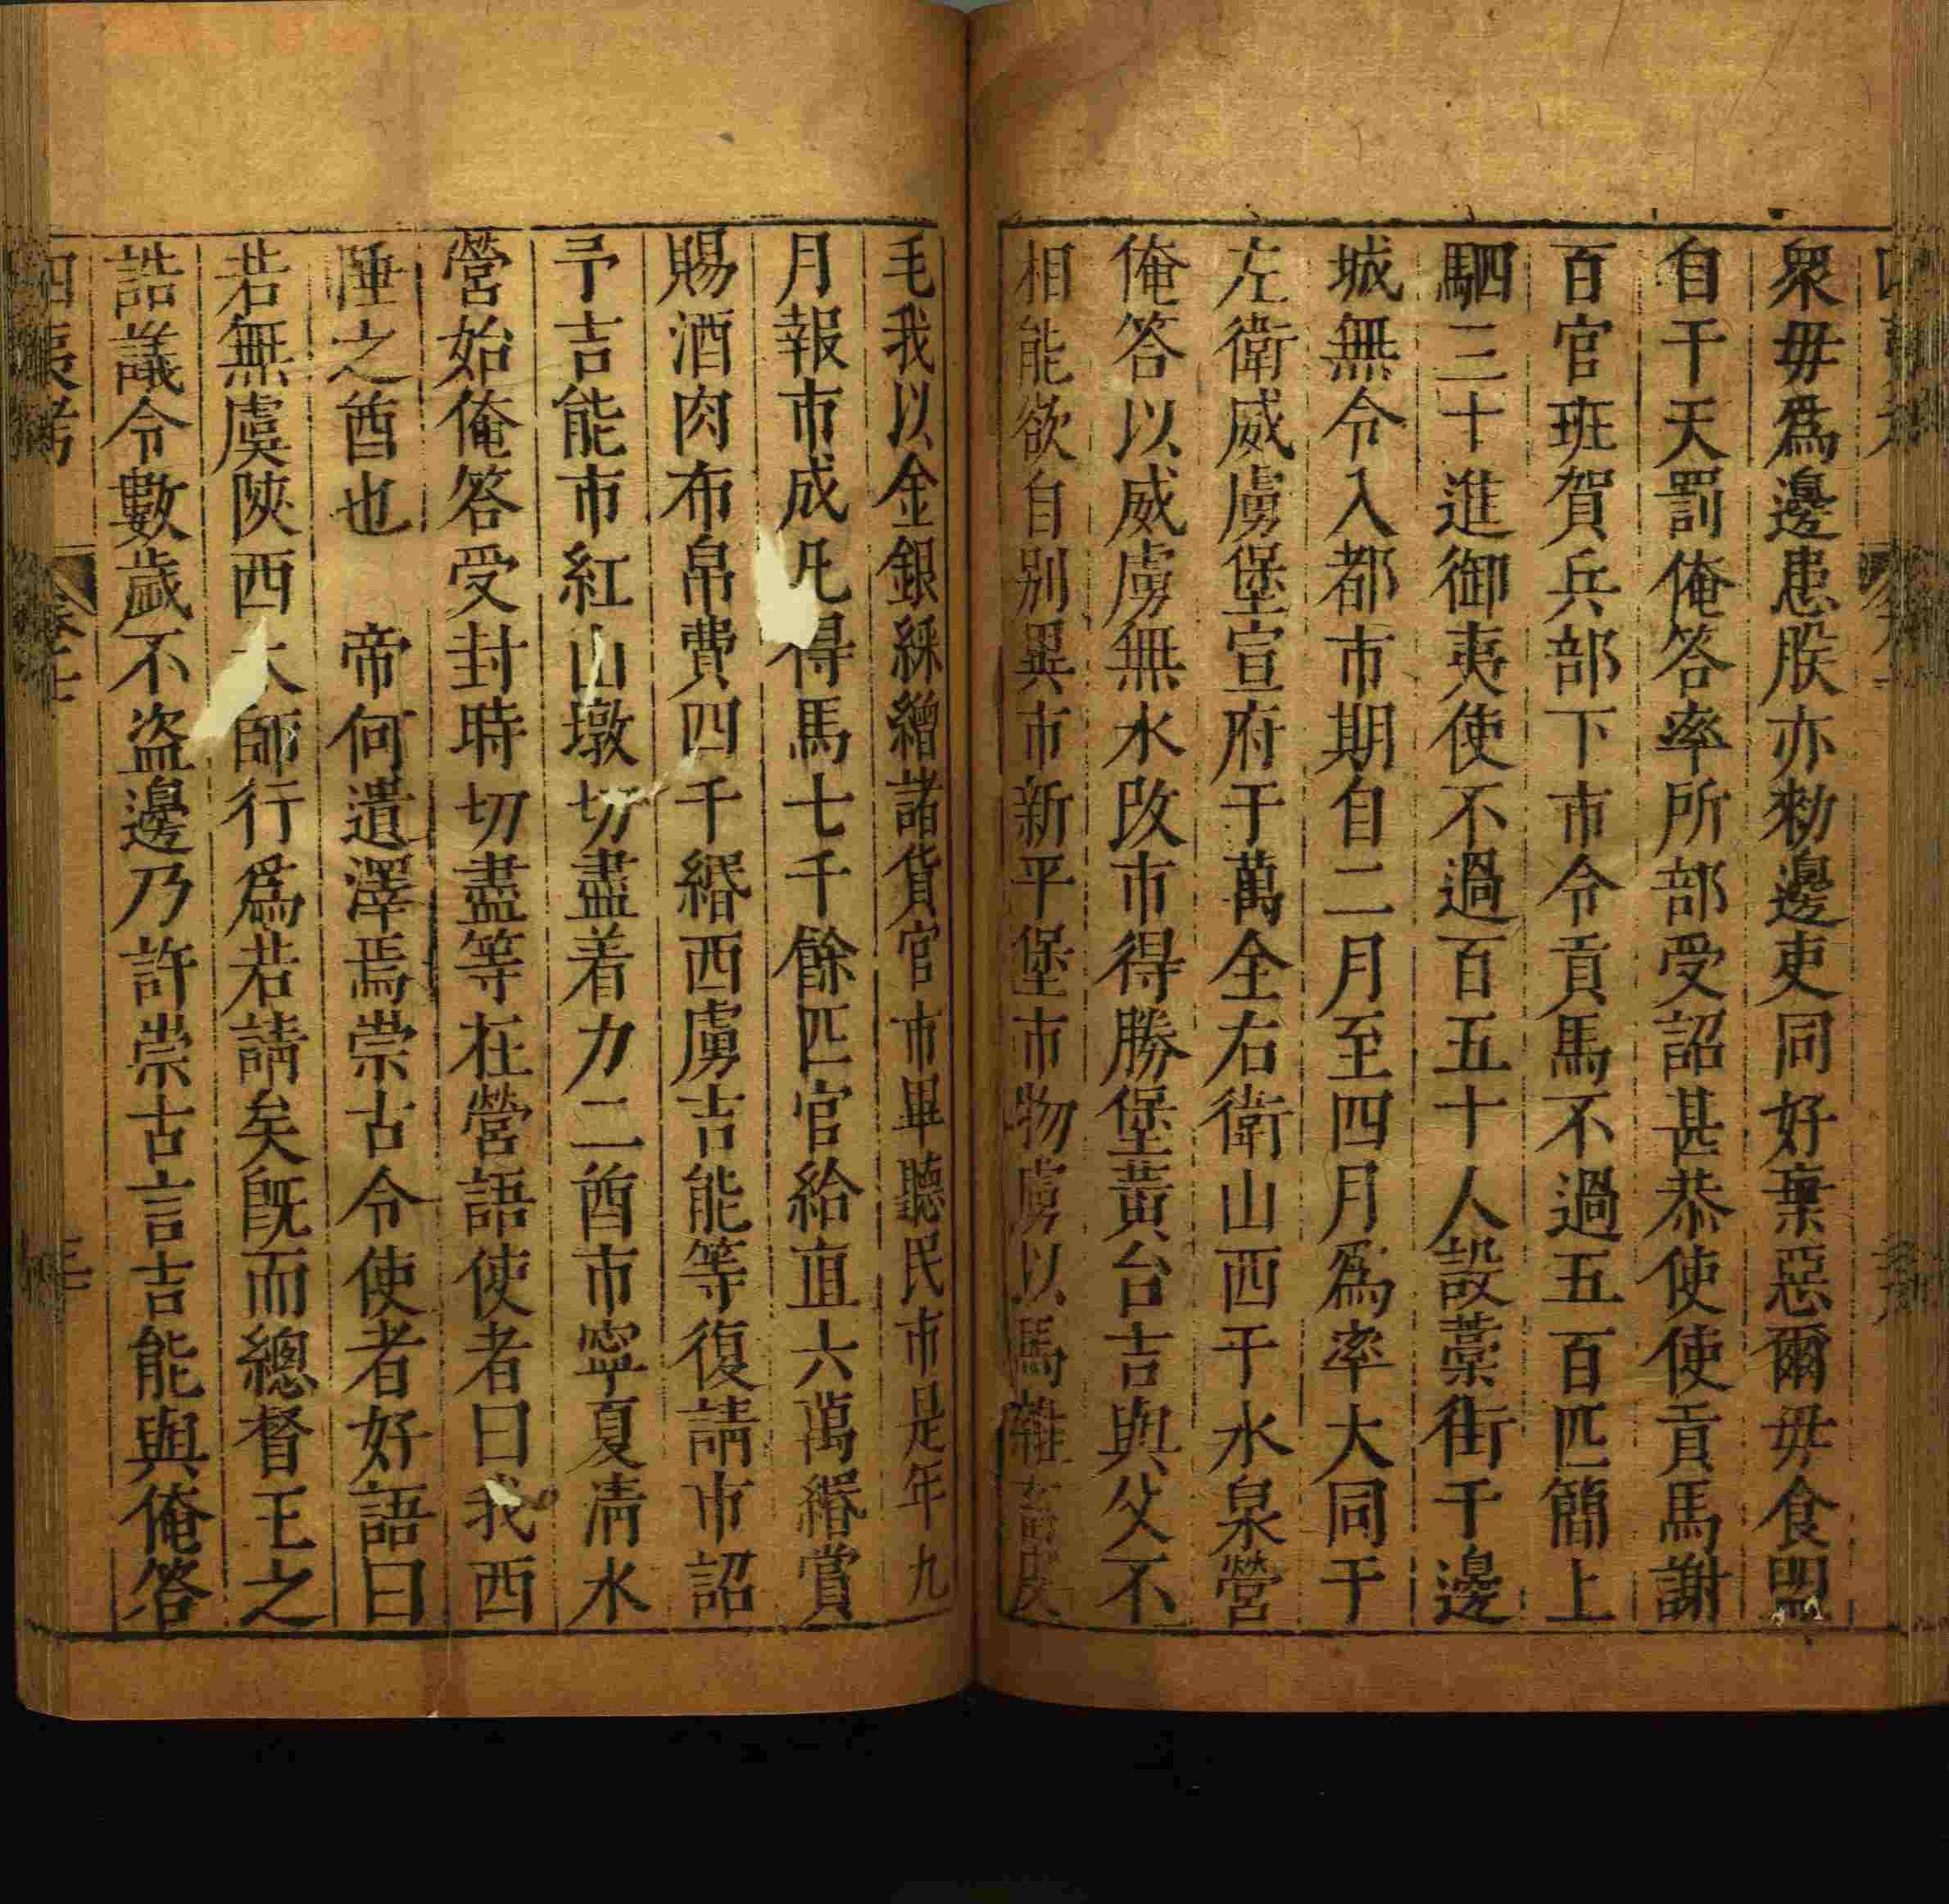 衆毋爲邊患朕亦勑邊吏同好棄惡爾毋食盟
自干天罰俺答率所部受詔甚恭使使貢馬謝
百官班賀兵部下市令貢馬不過五百匹簡上
駟三十進御夷使不過百五十人設藁街于邊
城無令入都市期自二月至四月爲率大同于
左衛威虜堡宣府于萬全右衛山西于水泉營
俺答以威虜無水改市得勝堡黃台吉與父不
相能欲自別異市新平堡市物虜以馬雜畜皮
毛我以金銀綵繒諸貨官市畢聽民市是年九
月報市成凡得馬七千餘匹官給直六萬緡賞
賜酒肉布帛費四千緡西虜吉能等復請市詔
予吉能市紅山墩切盡着力二酋市寧夏清水
營始俺答受封時切盡等在營語使者曰我西
陲之酋也　帝何遺澤焉崇古令使者好語曰
若無虞陝西大師行爲若請矣旣而總督王之
誥議令數歲不盜邊乃許崇古言吉能與俺答
四夷考